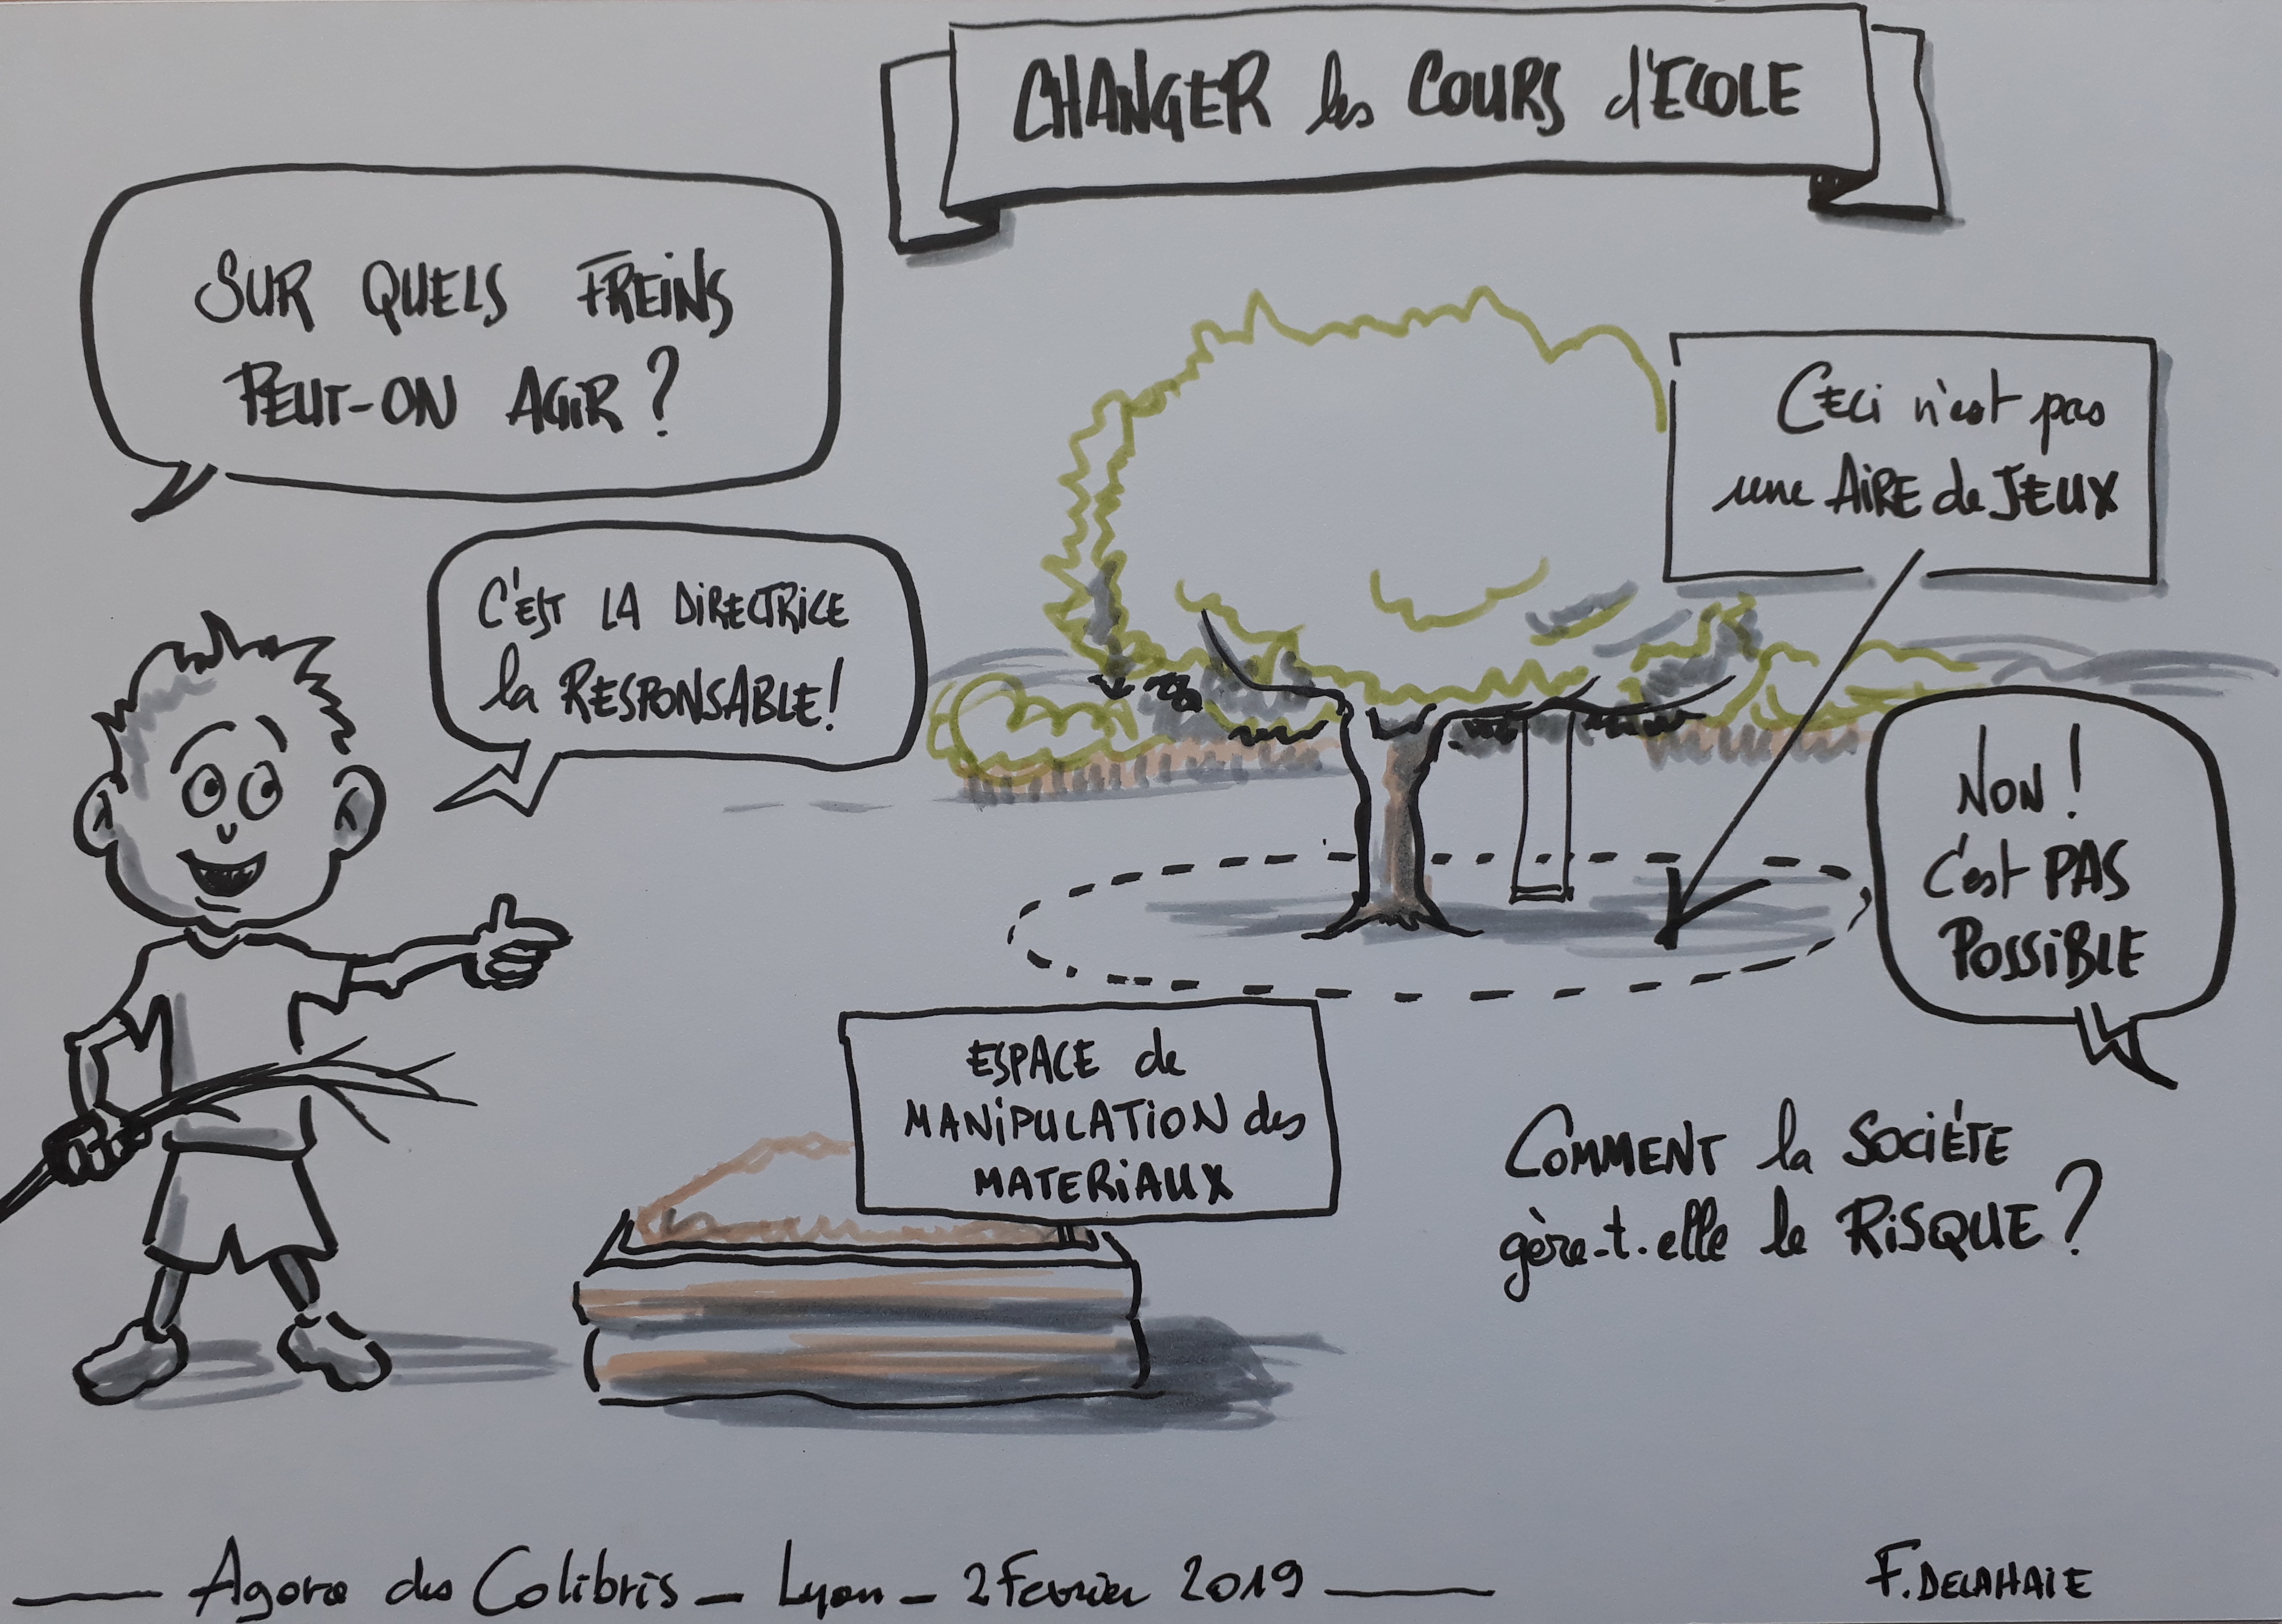 CHANGER les COURS d'ECOLE
SUR QUELS FREINS
PEUT-ON AGIR ?
C'EST LA DIRECTRICE
la RESPONSABLE !
Ceci n'est pas
une AIRE de JEUX
NON !
C'est PAS
POSSIBLE
ESPACE de
MANIPULATION des
MATERIAUX
COMMENT la SOCIÉTE
gère-t-elle le RISQUE ?
Agora des Colibris - Lyon - 2 Fevrier 2019
F. DELAHAIE